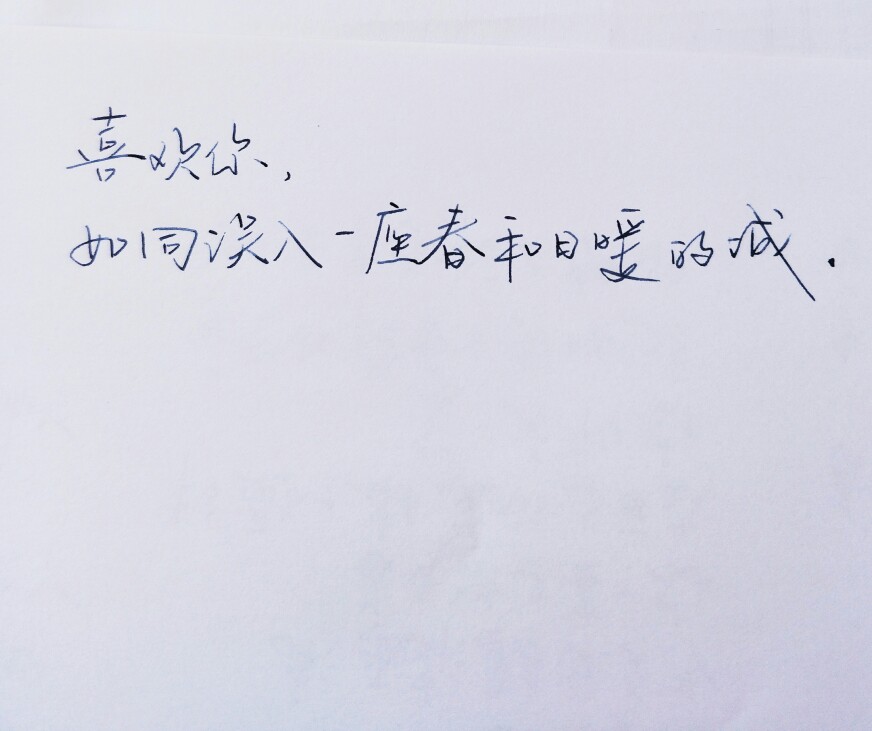 喜欢你,
如同误入一座春和日暖的城.